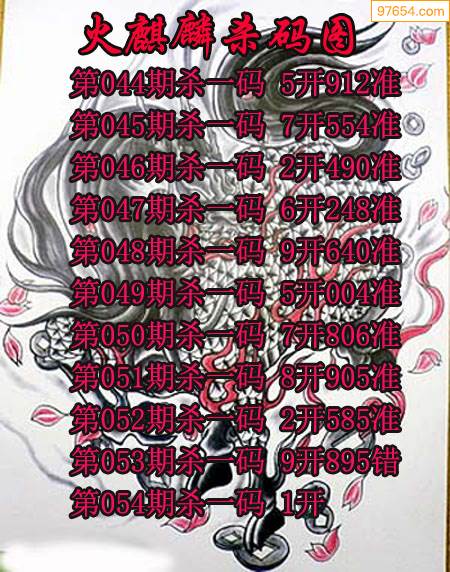 97654.com
火麒麟杀码图
第044期杀一码 5开912准
第045期杀一码 7开554准
第046期杀一码 2开490准
第047期杀一码 6开248准
第048期杀一码 9开640准
第049期杀一码 5开004准
第050期杀一码 7开806准
第051期杀一码 8开905准
第052期杀一码 2开585准
第053期杀一码 9开895错
第054期杀一码 1开